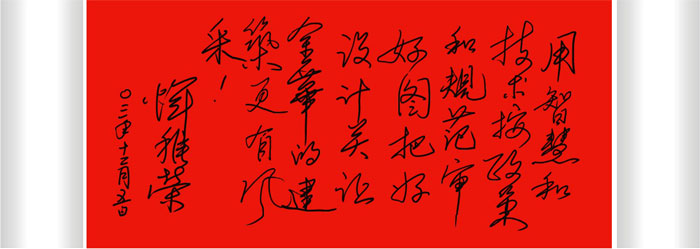 用智慧和
技术按政策
和規范审
好图把好
设计关让
金華的建
築更有风
采！
恽稚荣
〇三年十二月五日